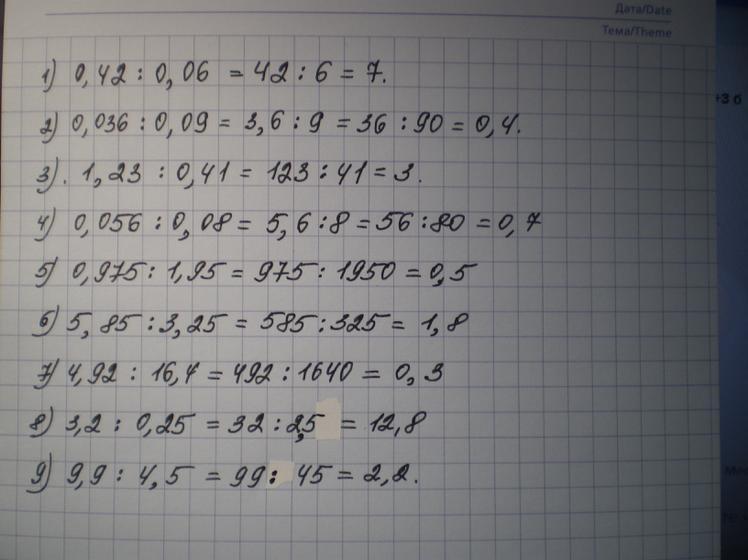 Дата/Date
Тема/Theme
+3 б
1) 0,42 : 0,06 = 42 : 6 = 7.
2) 0,036 : 0,09 = 3,6 : 9 = 36 : 90 = 0,4.
3). 1,23 : 0,41 = 123 : 41 = 3.
4) 0,056 : 0,08 = 5,6 : 8 = 56 : 80 = 0,7
5) 0,975 : 1,95 = 975 : 1950 = 0,5
6) 5,85 : 3,25 = 585 : 325 = 1,8
7) 4,92 : 16,4 = 492 : 1640 = 0,3
8) 3,2 : 0,25 = 32 : 2,5 = 12,8
9) 9,9 : 4,5 = 99 : 45 = 2,2.